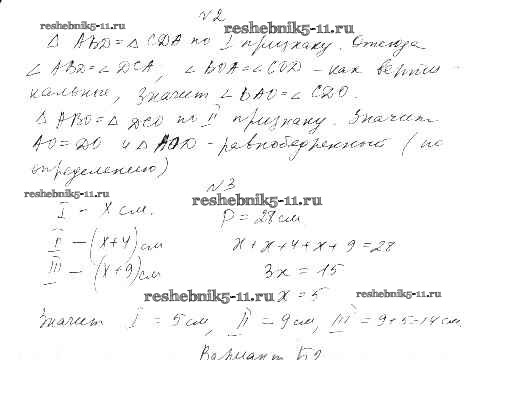 №2
reshebnik5-11.ru reshebnik5-11.ru
△ ABD = △ CDA по I признаку. Отсюда
∠ ABD = ∠ DCA, ∠ BOA = ∠ COD - как верти-
кальные, значит ∠ BAO = ∠ CDO.
△ ABO = △ DCO по II признаку. Значит
AO = DO и △ AOD - равнобедренный (по
определению)
reshebnik5-11.ru №3 reshebnik5-11.ru
I - x см. P = 28 см.
II - (x+4) см x + x + 4 + x + 9 = 28
III - (x+9) см 3x = 15
reshebnik5-11.ru x = 5 reshebnik5-11.ru
Значит I = 5 см, II = 9 см, III = 9+5=14 см.
Вариант